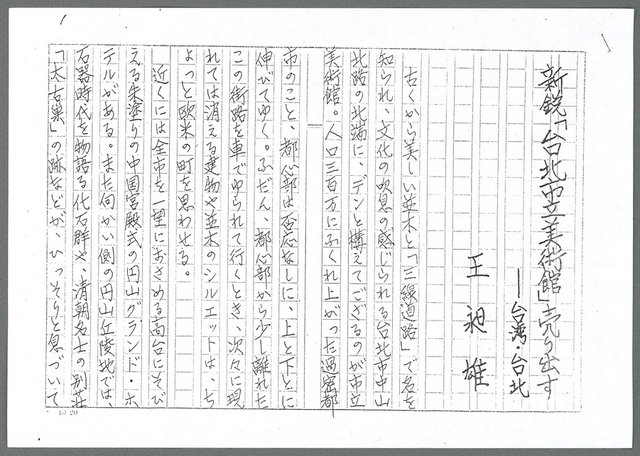 新鋭「台北市立美術館」売り出す
──台湾・台北
王昶雄
古くから美しい並木と「三線道路」で名を
知られ、文化の吹息の感じられる台北市中山
北路の北端に、デンと構えてござるのが市立
美術館。人口三百万にふくれ上がった過密都
市のこと、都心部は否応なしに、上と下とに
伸びてゆく。ふだん、都心部から少し離れた
この街路を車でゆられて行くとき、次々に現
れては消える建物や並木のシルエットは、ち
ょっと欧米の町を思わせる。
近くには全市を一望におさめる高台にそび
える朱塗りの中国宮殿式の円山グランド・ホ
テルがある。また向かい側の円山丘陵地では、
石器時代を物語る化石群や、清朝名士の別荘
「太古巣」の跡などが、ひっそりと息づいて